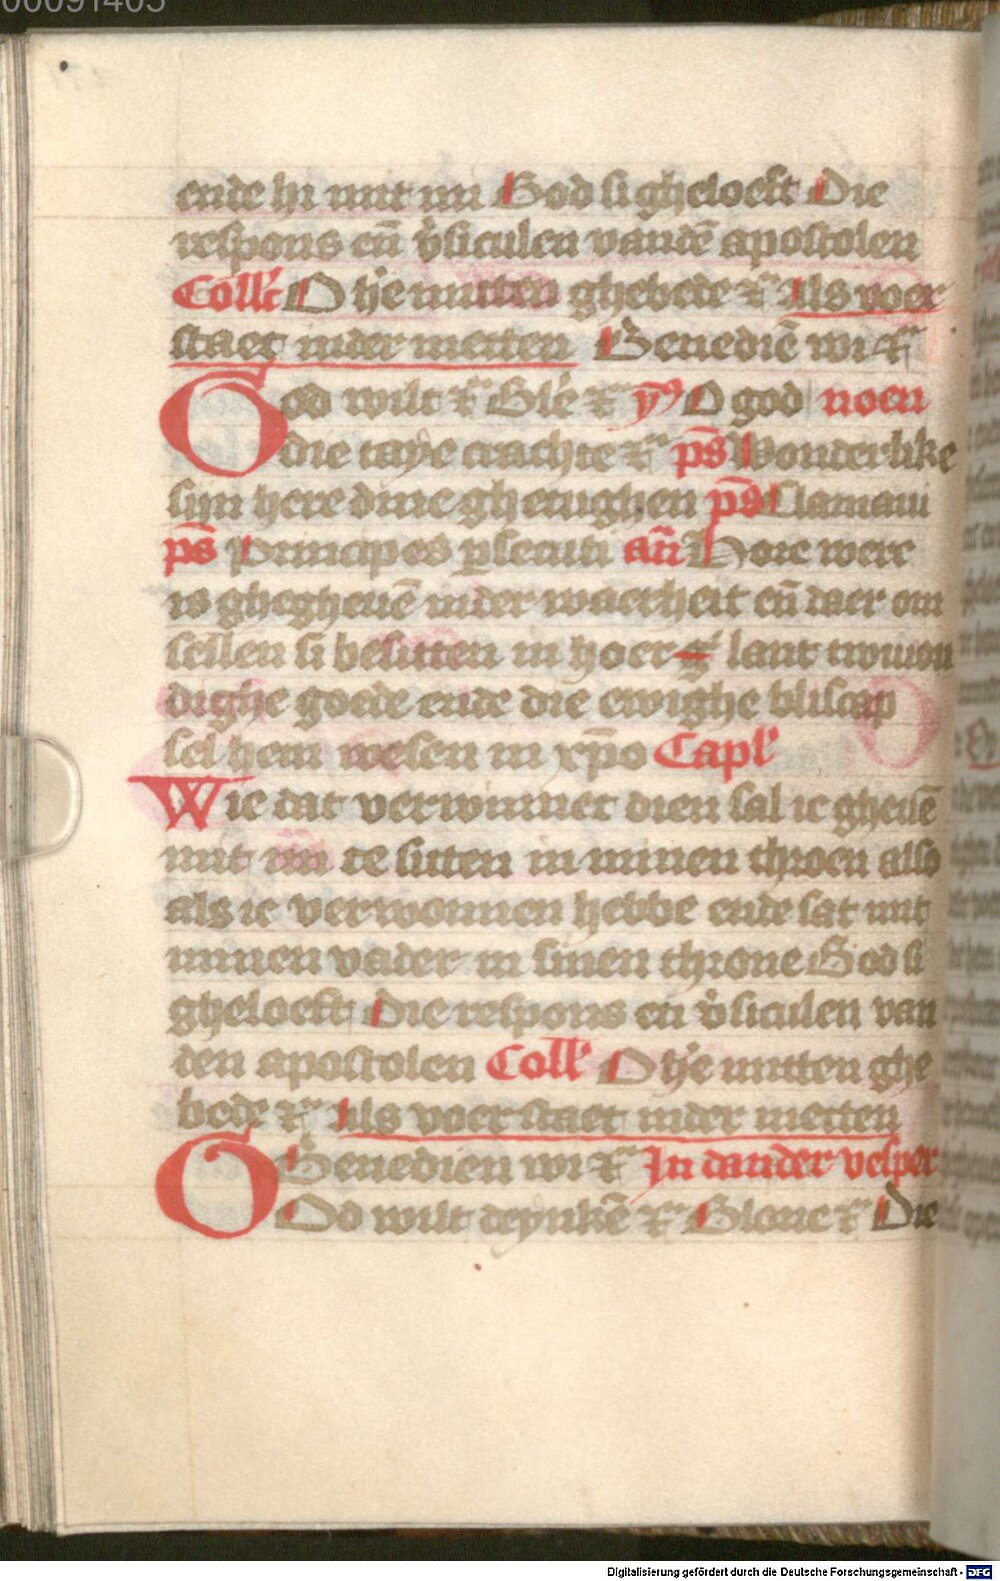 00091405
ende hi mit mi God si gheloeft Die
respons eñ v̉siculen vandē apostolen
Coll̄t O h̓e mitten ghebede ⁊c̄ Als voer
staet inder metten Benediē wi ⁊c̄
God wilt ⁊c̄ Glē ⁊c̄ yꝰ O god noen
die taye crachte ⁊c̄ p̄s Wonderlike
sijn here dine ghetughen p̄s Clamaui
p̄s Principes ꝑsecuti an̄ Hore were
is ghegheuē inder waerheit eñ daer om
sellen si besitten in hoer lant twiuou
dighe goede ende die ewighe bliscap
sel hem wesen in xp̄o Capl̓
Wie dat verwinnet dien sal ic gheuē
mit mi te sitten in minen throen also
als ic verwonnen hebbe ende sat mit
minen vader in sinen throne God si
gheloeft Die respons en v̉siculen van
den apostolen Coll̓ O h̓e mitten ghe
bede ⁊c̄ Als voer staet inder metten
Benedien wi ⁊c̄ In dander vesper
God wilt deynkē ⁊c̄ Glorie ⁊c̄ Die
Digitalisierung gefördert durch die Deutsche Forschungsgemeinschaft - DFG